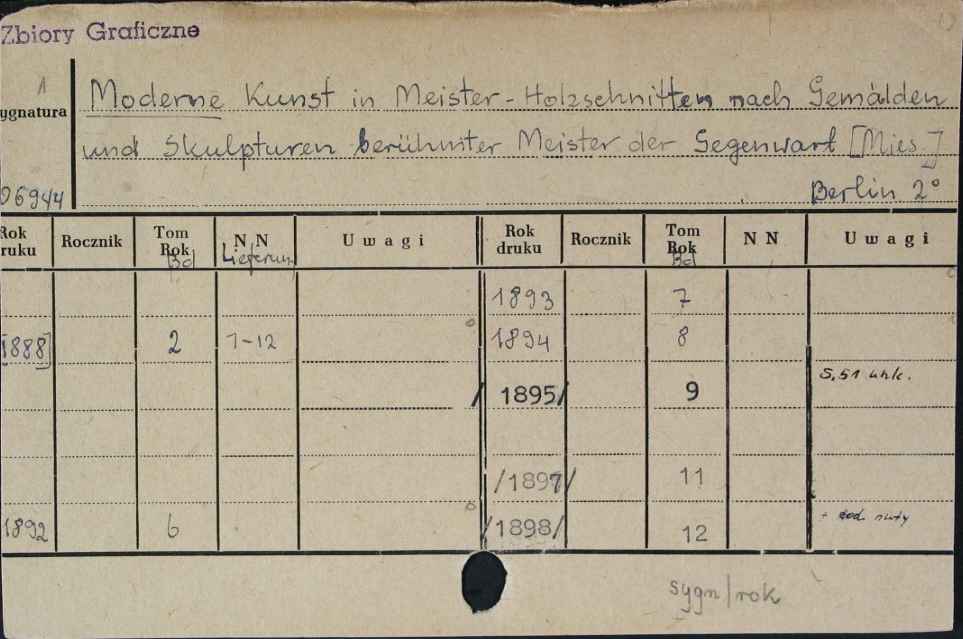 Zbiory Graficzne
Moderne Kunst in Meister-Holzschnitten nach Gemälden
ygnatura
und Skulpturen berühmter Meister der Gegenwart [Mies.]
Berlin 2°
Rok
druku
Rocznik
Tom
Rok
Bd
NN
Lieferun
Uwagi
Rok
druku
Rocznik
Tom
Rok
Bd
NN
Uwagi
1893 7
[1888] 2 1-12 1894 8
/1895/ 9 S. 51 uszk.
/1897/ 11
1892 6 /1898/ 12 + dod. nuty
sygn/rok